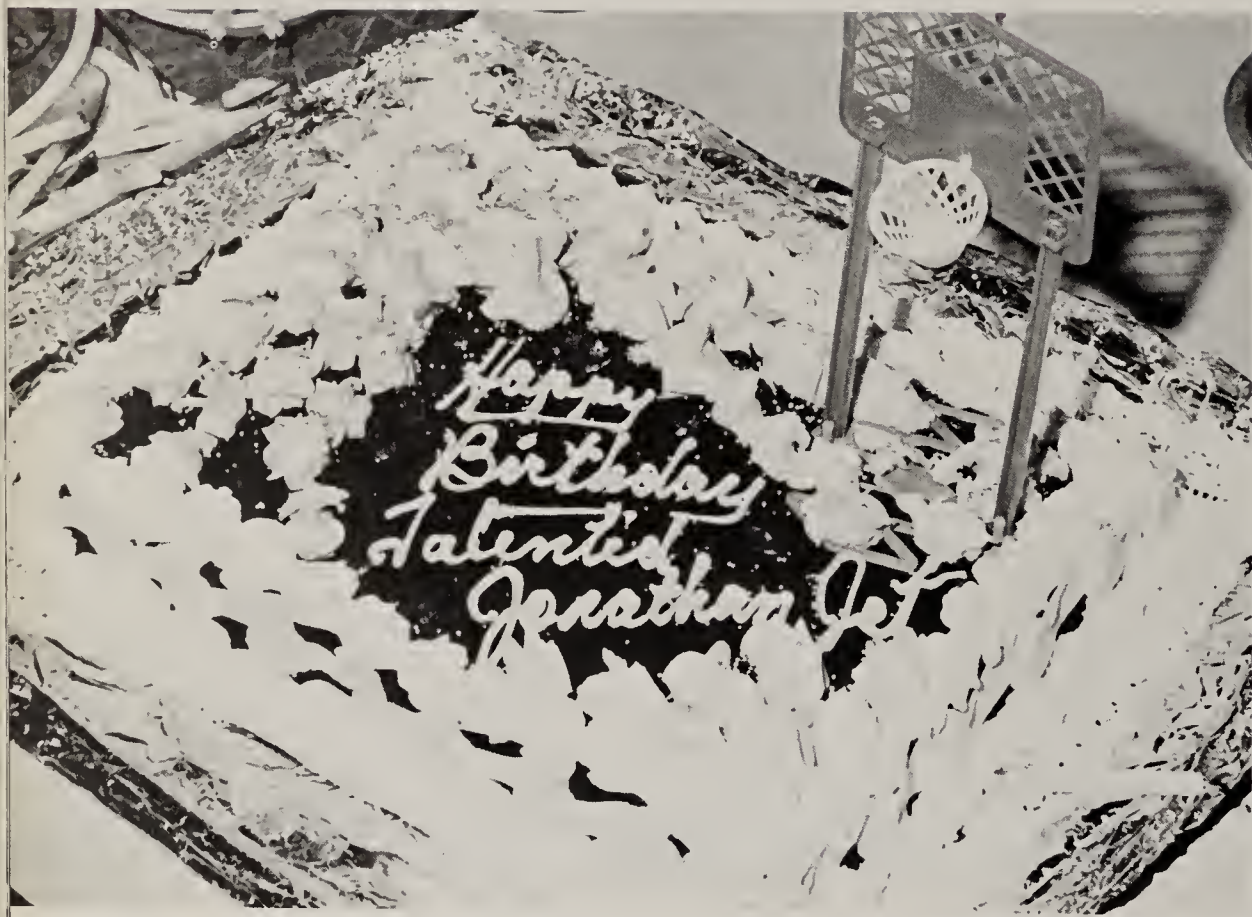 Happy
Birthday
Talented
Jonathan Jet